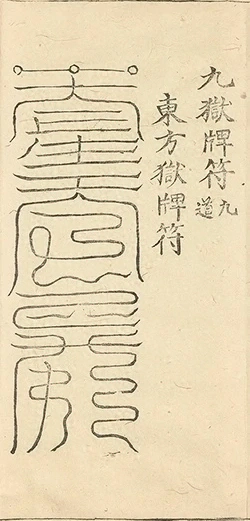 九獄牌符九道
東方獄牌符